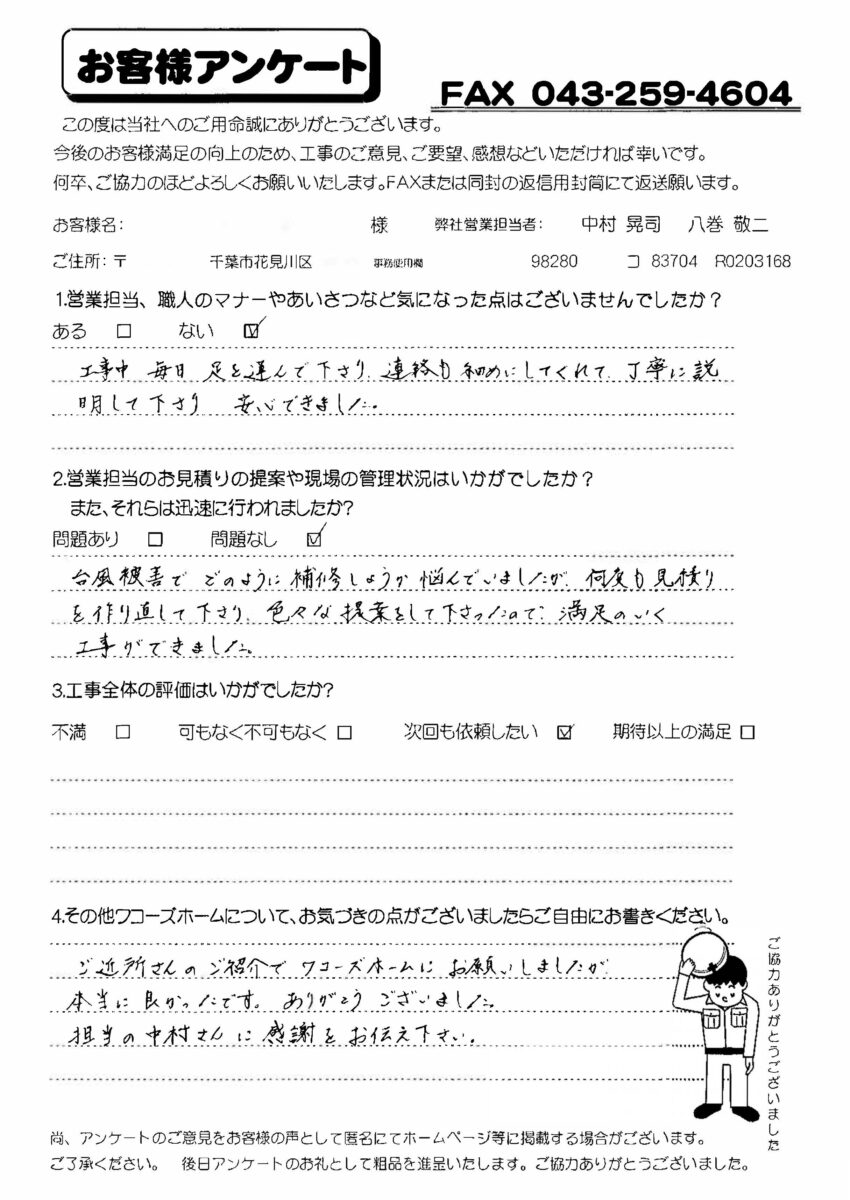 お客様アンケート
FAX 043-259-4604
この度は当社へのご用命誠にありがとうございます。
今後のお客様満足の向上のため、工事のご意見、ご要望、感想などいただければ幸いです。
何卒、ご協力のほどよろしくお願いいたします。FAXまたは同封の返信用封筒にて返送願います。
お客様名: 様 弊社営業担当者: 中村 晃司 八巻 敬二
ご住所:〒 千葉市花見川区 事務使用欄 98280 コ 83704 R0203168
1.営業担当、職人のマナーやあいさつなど気になった点はございませんでしたか?
ある □ ない ☑
工事中 毎日 足を運んで下さり、連絡も細めにしてくれて、丁寧に説
明して下さり 安心できました。
2.営業担当のお見積りの提案や現場の管理状況はいかがでしたか?
また、それらは迅速に行われましたか?
問題あり □ 問題なし ☑
台風被害で どのように 補修しようか 悩んでいましたが、何度も見積り
を作り直して下さり、色々な提案をして下さったので、満足のいく
工事ができました。
3.工事全体の評価はいかがでしたか?
不満 □ 可もなく不可もなく □ 次回も依頼したい ☑ 期待以上の満足 □
4.その他ワコーズホームについて、お気づきの点がございましたらご自由にお書きください。
ご近所さんのご紹介で ワコーズホームに お願いしましたが
本当に良かったです。ありがとうございました。
担当の中村さんに感謝をお伝え下さい。
ご協力ありがとうございました
尚、アンケートのご意見をお客様の声として匿名にてホームページ等に掲載する場合がございます。
ご了承ください。 後日アンケートのお礼として粗品を進呈いたします。ご協力ありがとうございました。